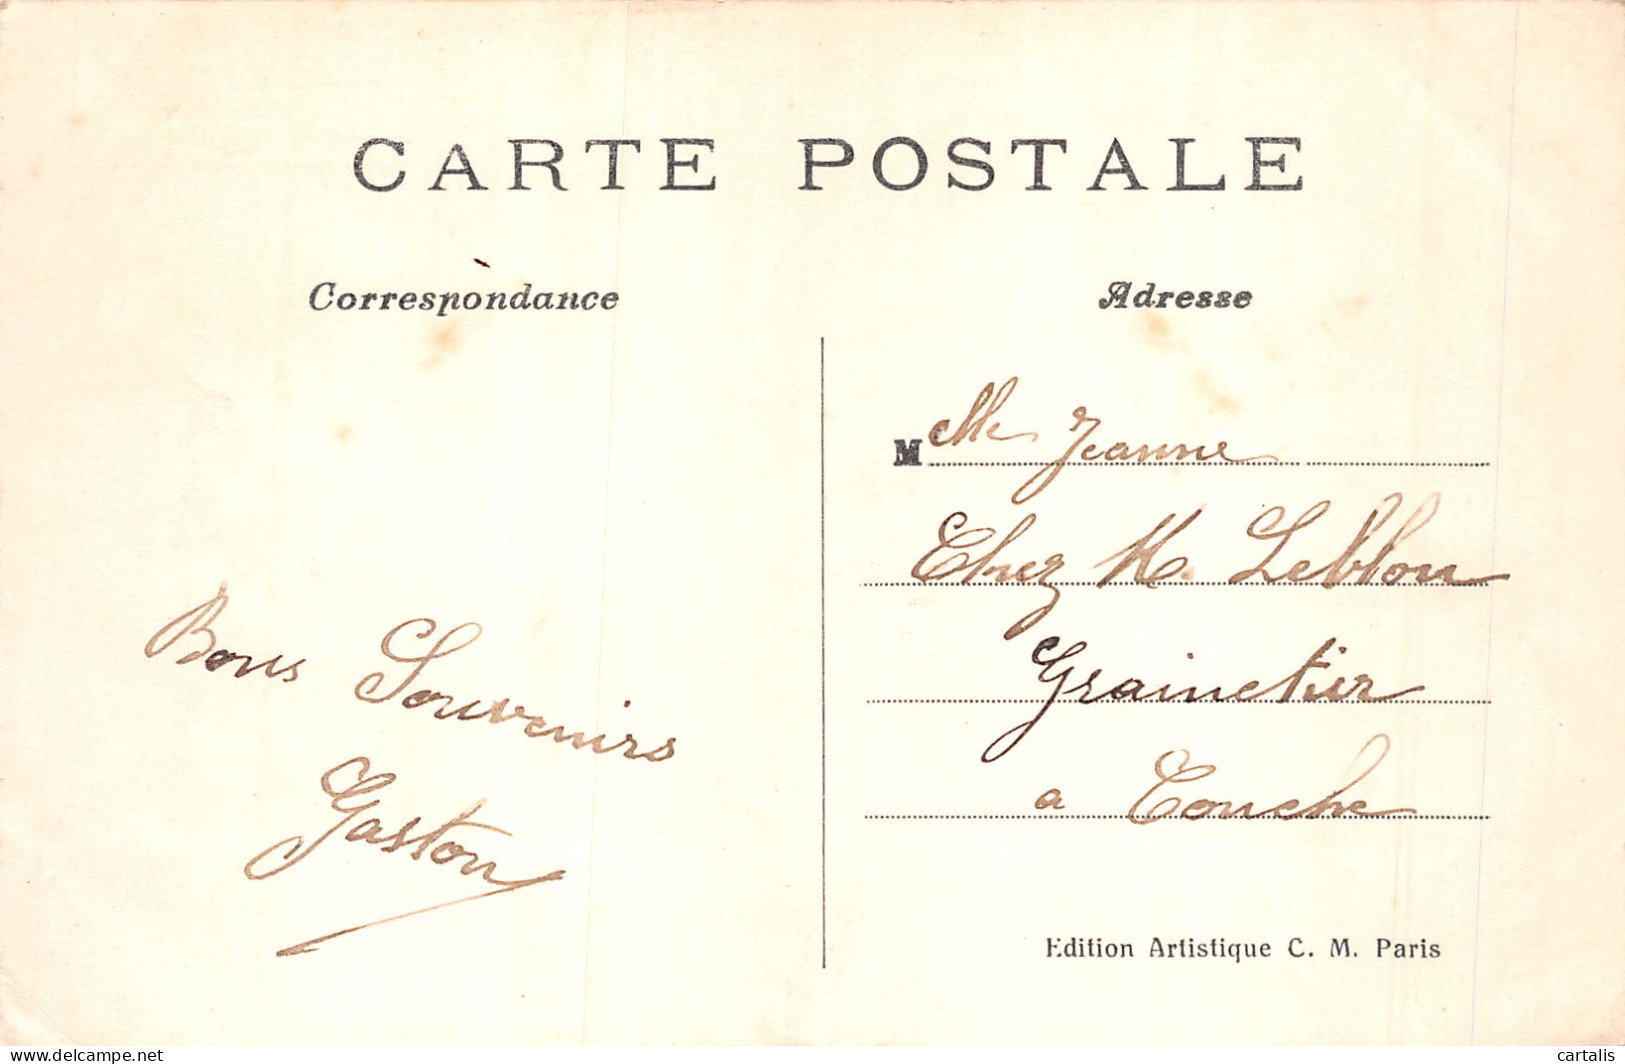 CARTE POSTALE
Correspondance
Adresse
Bons Souvenirs
Gaston
M elle Jeanne
Chez M. Leblon
Grainetier
a Couche
Edition Artistique C. M. Paris
delcampe.net
cartalis